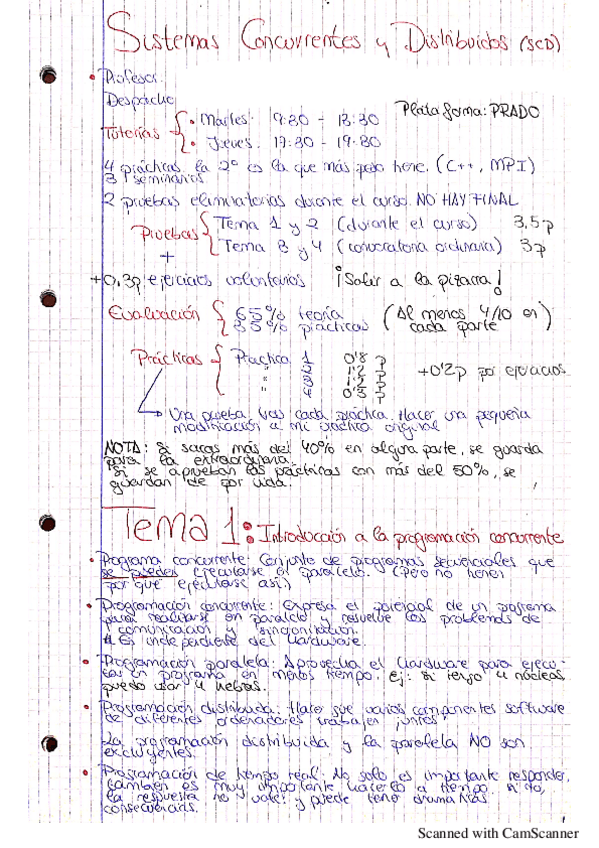 Sistemas Concurrentes y Distribuidos (SCD)
• Profesor:
Despacho
Plataforma: PRADO
Tutorías { • Martes: 9:30 - 13:30
• Jueves: 17:30 - 19:30
4 prácticas la 2ª es la que más peso tiene. (C++, MPI)
3 seminarios
2 pruebas eliminatorias durante el curso. NO HAY FINAL
Pruebas { Tema 1 y 2 (durante el curso) 3,5p
Tema 3 y 4 (convocatoria ordinaria) 3p
+
+0,3p ejercicios voluntarios ¡Salir a la pizarra!
Evaluación { 65% teoría (Al menos 4/10 en
35% prácticas cada parte)
Prácticas { Practica 1 0'8 p
" 2 p +0'2p por ejercicios
" 3 p
" 4 p
Una prueba tras cada práctica. Hacer una pequeña
modificación a mi práctica original
NOTA: Si sacas más del 40% en alguna parte, se guarda
para la extraordinaria.
Si se aprueban las prácticas con más del 50%, se
guardan de por vida.
Tema 1: Introducción a la programación concurrente
• Programa concurrente: Conjunto de programas secuenciales que
se pueden ejecutarse en paralelo. (Pero no tienen
por que ejecutarse así.)
• Programación concurrente: Expresa el potencial de un programa
para realizarse en paralelo y resuelve los problemas de
comunicación y sincronización.
Es independiente del Hardware.
• Programación paralela: Aprovecha el Hardware para ejecu-
tar un programa en menos tiempo. Ej: si tengo 4 núcleos
puedo usar 4 hebras.
• Programación distribuida: Hacer que varios componentes software
de diferentes ordenadores trabajen juntos.
La programación distribuida y la paralela NO son
excluyentes.
• Programación de tiempo real: No solo es importante responder,
también es muy importante hacerlo a tiempo. Si no,
la respuesta no vale y puede tener dramáticas
consecuencias.
Scanned with CamScanner